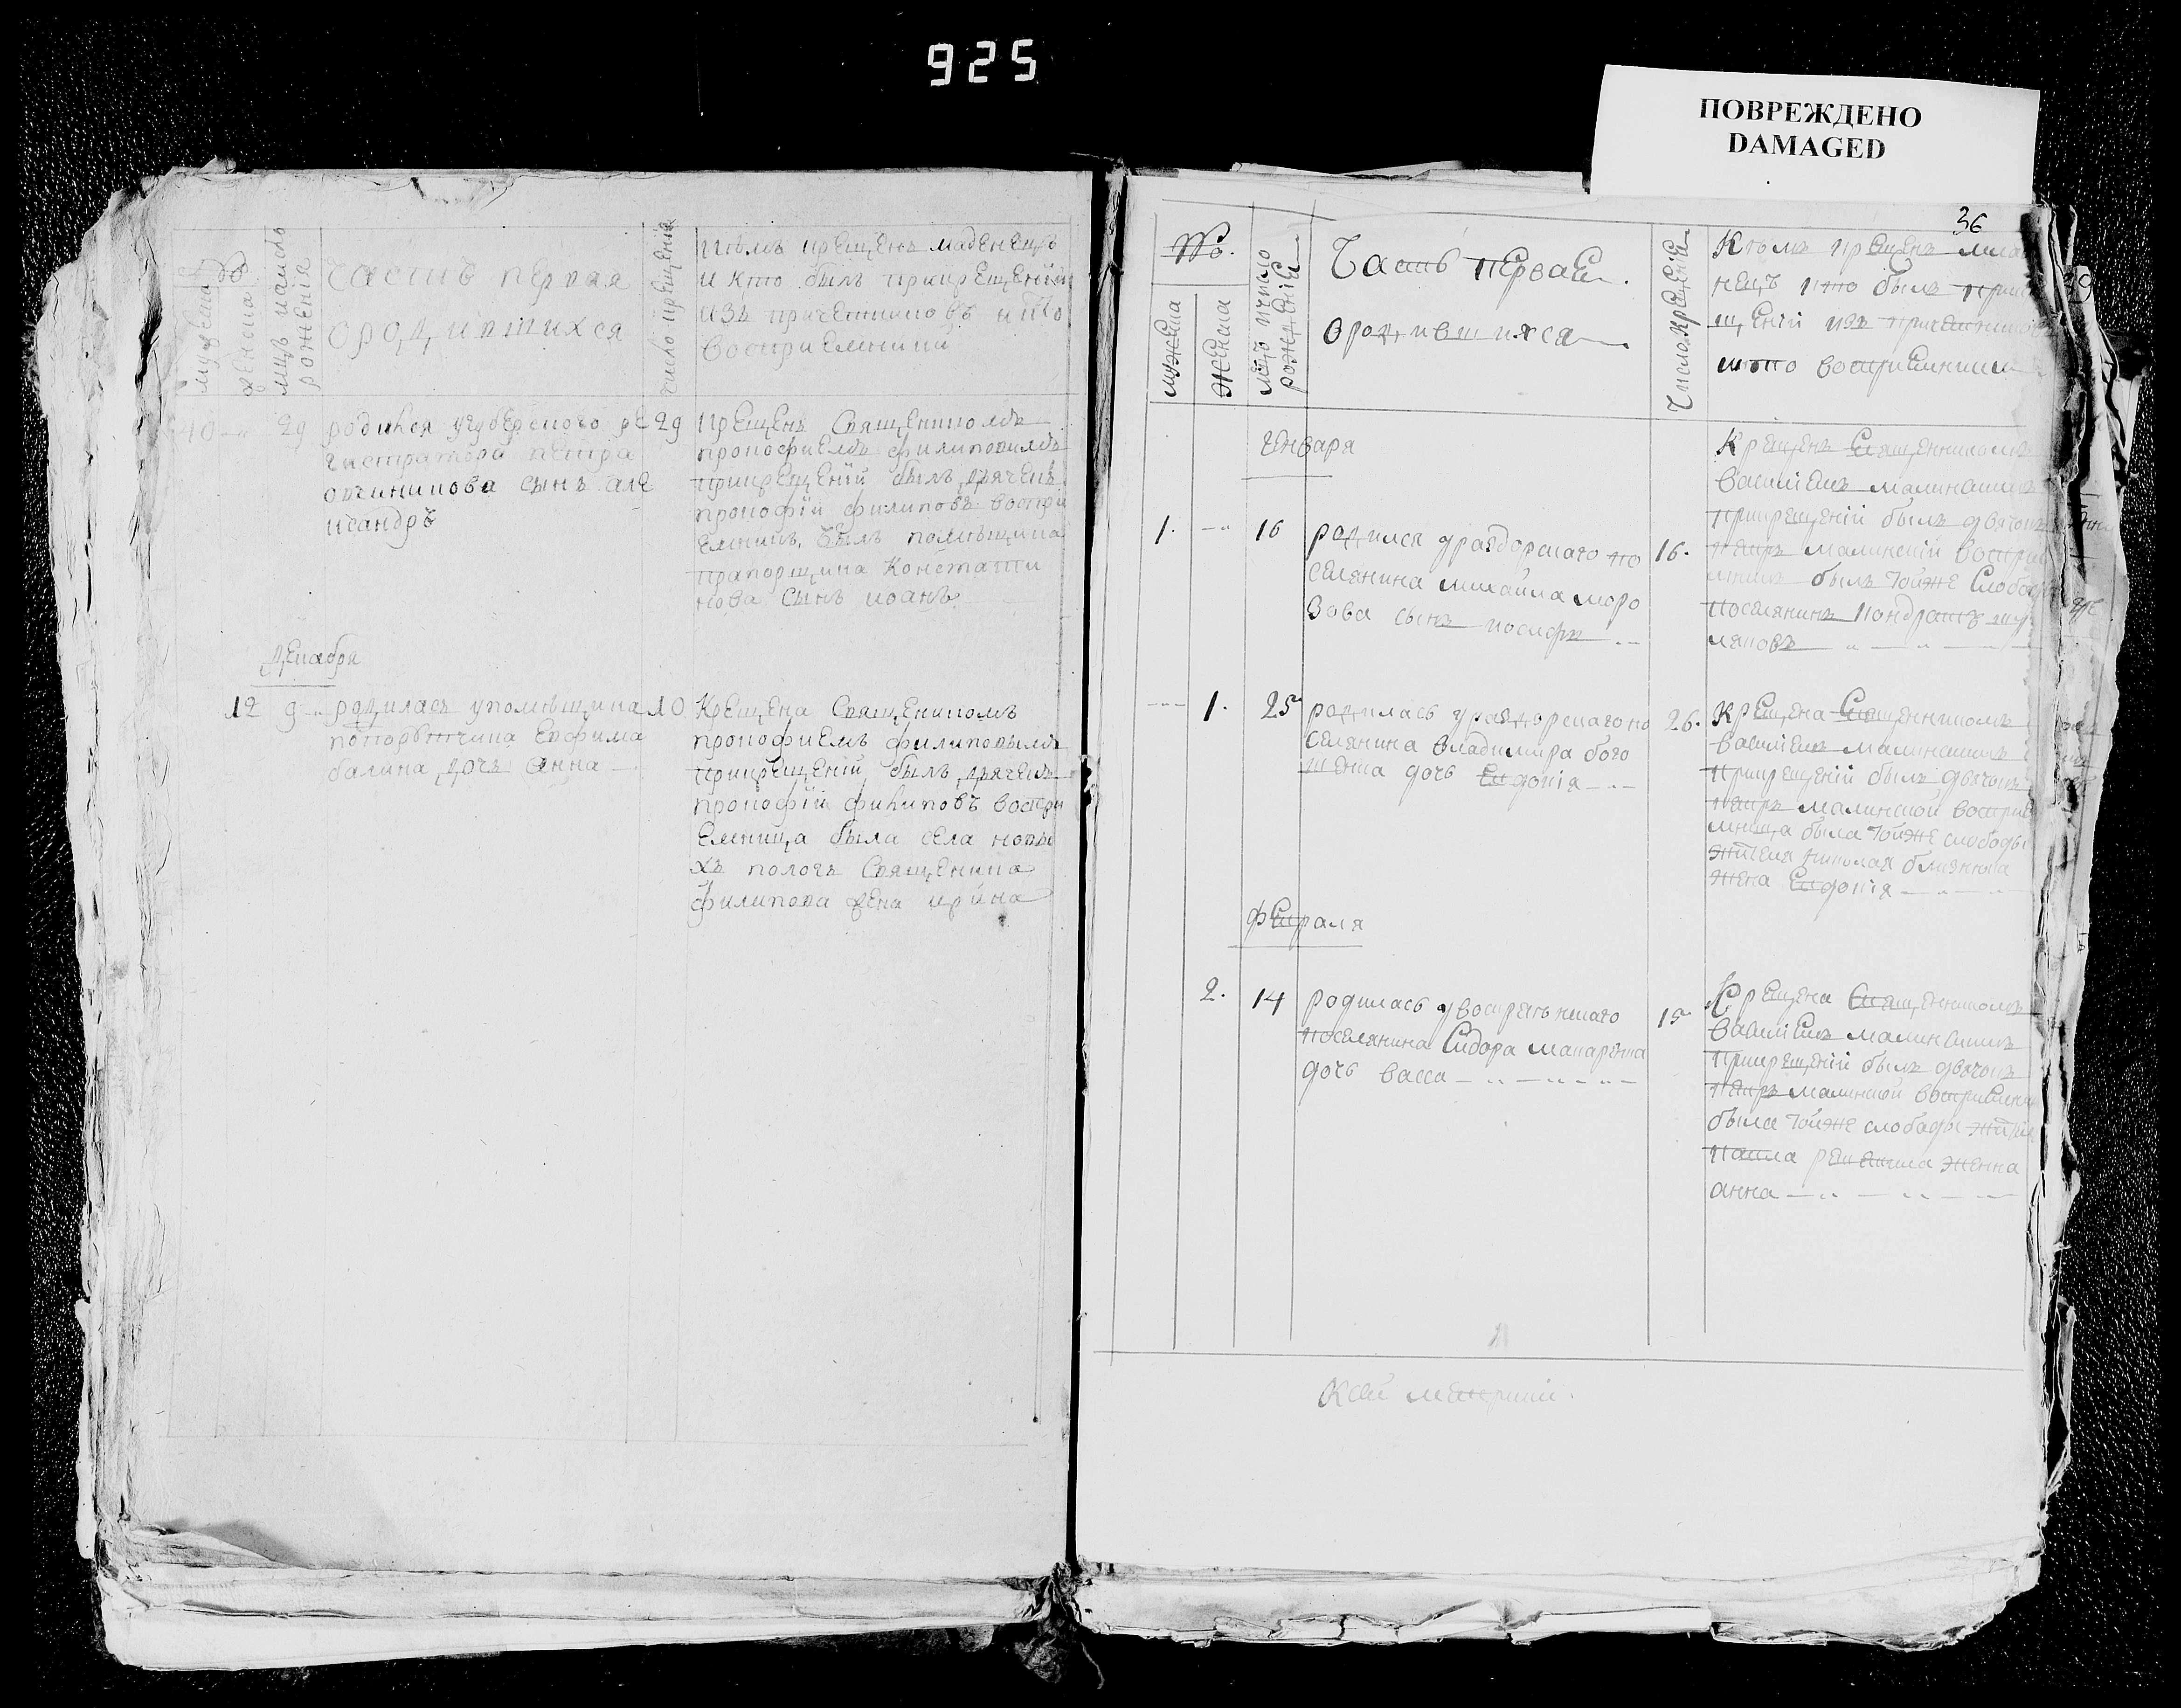 925
ПОВРЕЖДЕНО
DAMAGED
№
мужеска
женска
мцъ и число
рожения
часть первая
о родившихся
число крещения
кѣмъ крещенъ младенецъ
и кто былъ прикрещении
изъ причетниковъ и кто
восприемники
40 29
родился у губерского ре
гистратора петра
овчиникова сынъ але
ксандръ
29
крещенъ Священикомъ
прокофиемъ филиповимъ
прикрещении былъ дячекъ
прокофій филиповъ воспри
емникъ былъ помѣщика
прапорщика Константи
нова сынъ иоанъ
декабря
12 9
родилась у помѣщика
попорытчика Ефима
балина дочь анна
10
Крещена Священикомъ
прокофиемъ филиповымъ
прикрещеніи былъ дячекъ
прокофій филиповъ воспри
емница была села новы
хъ Священика
филипова жена ирина
36
№.
мужеска
женска
мцъ и число
рожденія
Часть первая
о родившихся
Число крещенія
Кѣмъ крещенъ мла
нецъ кто былъ прикр
щеніи изъ причетников
и кто восприемники
генваря
1. 16
родился у по
селянина михаила моро
зова сынъ иосифъ
16.
Крещенъ Священникомъ
василіемъ малинскимъ
прикрещеніи былъ дячокъ
петръ малинскій восприе
мникъ былъ тойже Слободы
поселянинъ кондратъ
1. 25
родилась у по
селянина владимира бого
дочь Евдокія
26.
Крещена Священникомъ
василіемъ малинскимъ
прикрещеніи былъ дячокъ
петръ малинской восприе
мница была тойже слободы
жителя николая
жена Евдокія
февраля
2. 14
родилась у
поселянина Сидора макаренка
дочь васса
15
Крещена Священникомъ
василіемъ малинскимъ
прикрещеніи былъ дячокъ
петръ малинской восприемница
была тойже слободы жителя
павла женна
анна